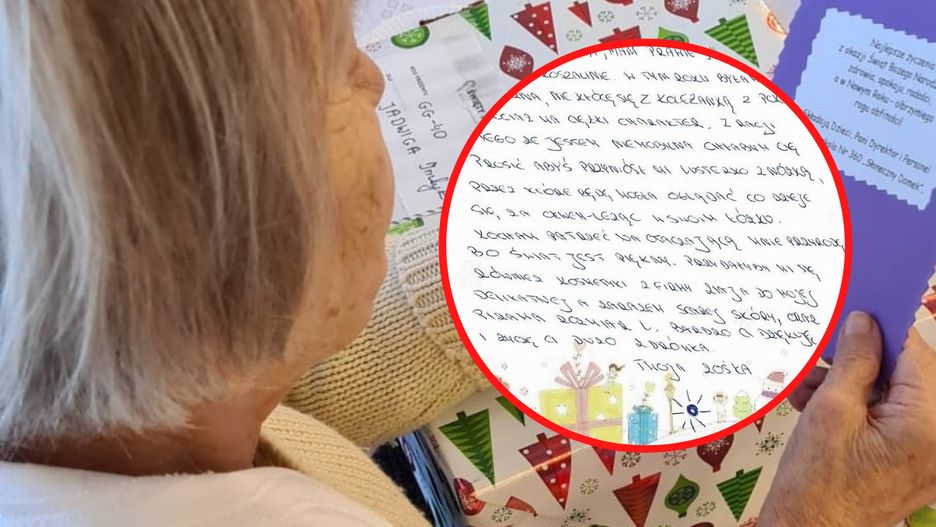 DLA
KOD PREZENTU
GG-40
JADWIGA
, MAM PRAWIE
W TYM ROKU BYŁA
NIE KŁÓCĘ SIĘ Z KOLEŻANKĄ Z
MA CIĘŻKI CHARAKTER. Z RACJI
TEGO ŻE JESTEM NIEMOBILNA CHCIAŁABYM CIĘ
PROSIĆ ABYŚ PRZYNIÓSŁ MI LUSTERKO Z NÓŻKĄ,
PRZEZ KTÓRE BĘDĘ MOGŁA OGLĄDAĆ CO DZIEJE
SIĘ ZA OKNEM LEŻĄC W SWOIM ŁÓŻKU.
KOCHAM PATRZEĆ NA OTACZAJĄCĄ MNIE PRZYRODĘ
BO ŚWIAT JEST PIĘKNY. PRZYDAŁYBY MI SIĘ
RÓWNIEŻ KOSMETYKI Z FIRMY ZIAJA DO MOJEJ
DELIKATNEJ A ZARAZEM STAREJ SKÓRY, ORAZ
PIŻAMA ROZMIAR L. BARDZO CI DZIĘKUJĘ
I ŻYCZĘ CI DUŻO ZDRÓWKA.
TWOJA ZOŚKA
Najlepsze życzenia
z okazji Świąt Bożego Narod
zdrowia, spokoju, radości,
a w Nowym Roku - olbrzymiego
rogu obfitości!
Składają Dzieci, Pani Dyrektor i Personel
Nr 360 „Słoneczny Domek"